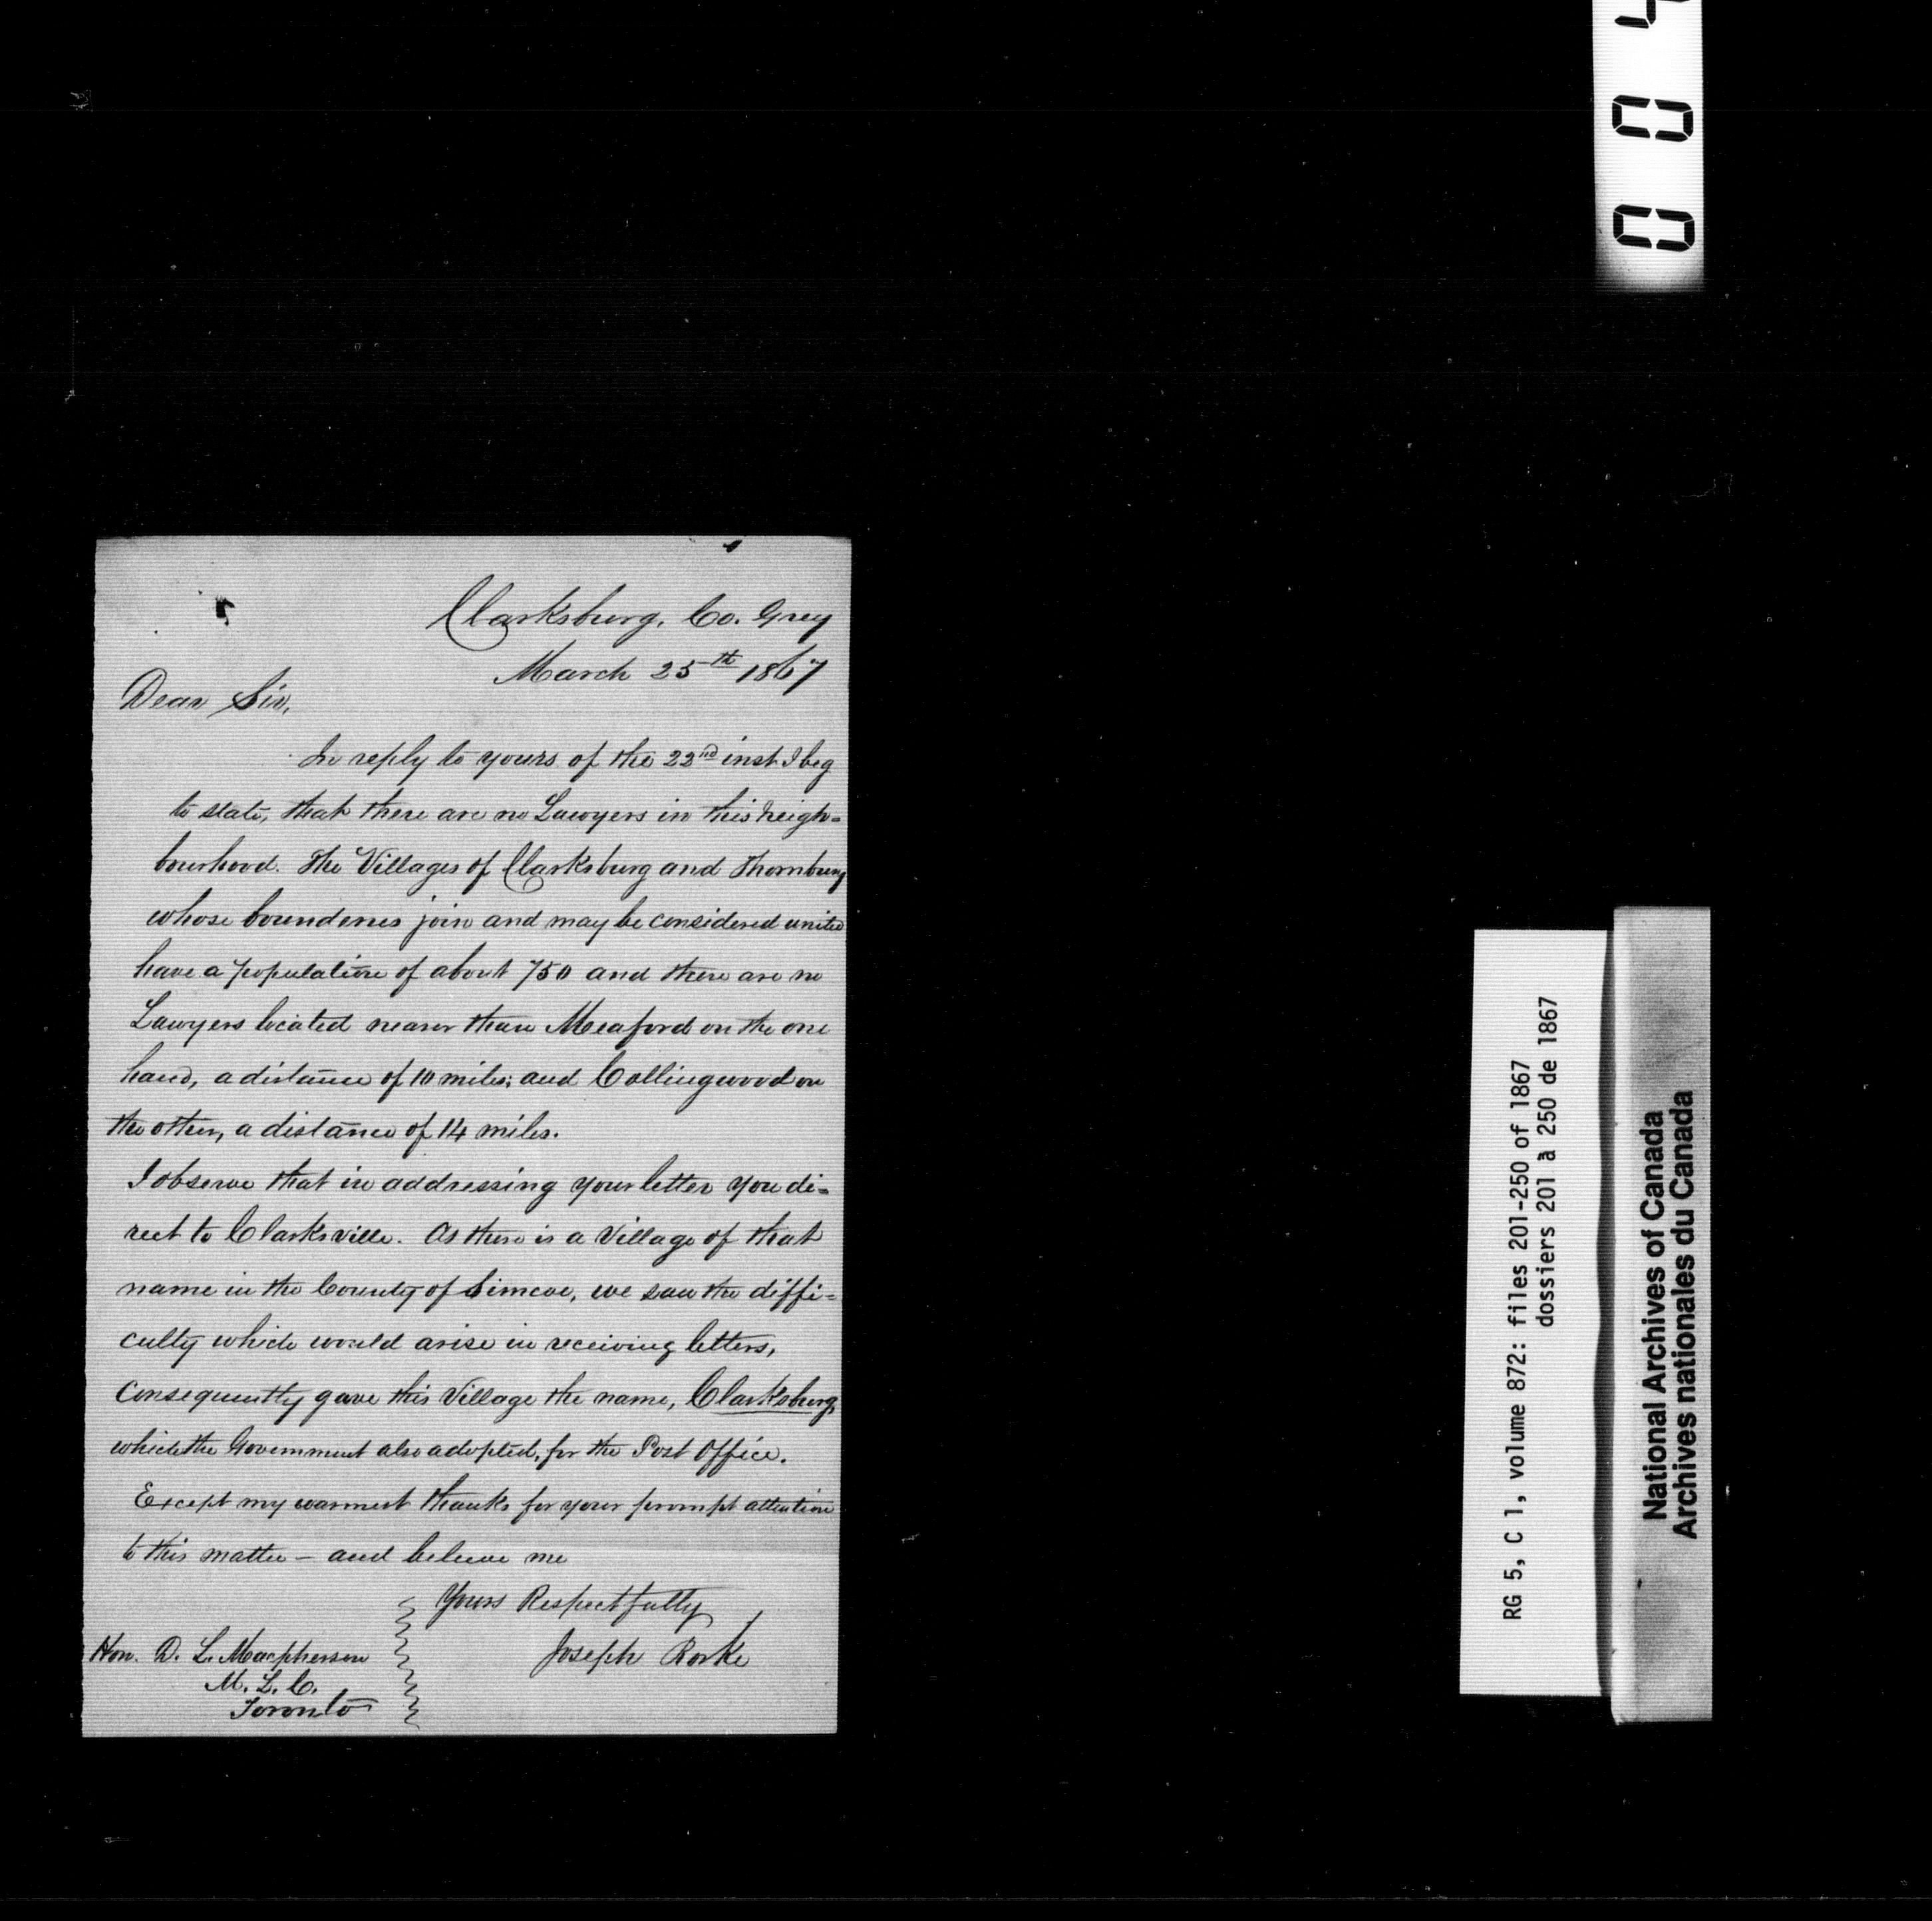 Clarksburg, Co. Grey
March 25th 1867
Dear Sir,
In reply to yours of the 22nd inst I beg
to state, that there are no Lawyers in this neigh=
bourhood. The Villages of Clarksburg and Thornbury
whose bounderies join and may be considered united
have a population of about 750 and there are no
Lawyers located nearer than Meaford on the one
hand, a distance of 10 miles; and Collingwood on
the other, a distance of 14 miles.
I observe that in addressing your letter you di=
rect to Clarksville. As there is a Village of that
name in the County of Simcoe, we saw the diffi=
culty which would arise in receiving letters,
Consequently gave this Village the name, Clarksburg,
which the Government also adopted, for the Post Office.
Except my warmest thanks for your prompt attention
to this matter – and believe me
Yours Respectfully
Joseph Rorke
Hon. D. L. Macpherson
M. L. C.
Toronto
0 0 4
RG 5, C 1, volume 872: files 201-250 of 1867
dossiers 201 à 250 de 1867
National Archives of Canada
Archives nationales du Canada